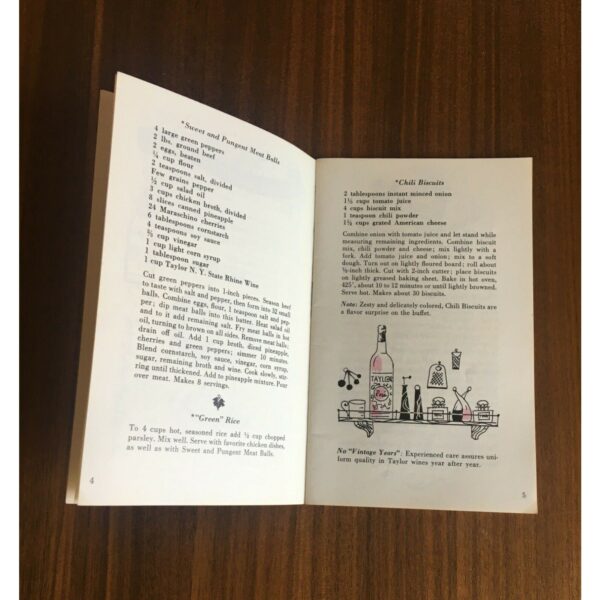 *Sweet and Pungent Meat Balls
4 large green peppers
2 lbs. ground beef
2 eggs, beaten
¼ cup flour
2 teaspoons salt, divided
Few grains pepper
½ cup salad oil
3 cups chicken broth, divided
8 slices canned pineapple
24 Maraschino cherries
6 tablespoons cornstarch
4 teaspoons soy sauce
cup vinegar
1 cup light corn syrup
1 tablespoon sugar
1 cup Taylor N. Y. State Rhine Wine
Cut green peppers into 1-inch pieces. Season beef
to taste with salt and pepper, then form into 32 small
balls. Combine eggs, flour, 1 teaspoon salt and pep-
per; dip meat balls into this batter. Heat salad oil
and to it add remaining salt. Fry meat balls in hot
oil, turning to brown on all sides. Remove meat balls;
drain off oil. Add 1 cup broth, diced pineapple,
cherries and green peppers; simmer 10 minutes.
Blend cornstarch, soy sauce, vinegar, corn syrup,
sugar, remaining broth and wine. Cook slowly, stir-
ring until thickened. Add to pineapple mixture. Pour
over meat. Makes 8 servings.
*"Green" Rice
To 4 cups hot, seasoned rice add cup chopped
parsley. Mix well. Serve with favorite chicken dishes,
as well as with Sweet and Pungent Meat Balls.
4
*Chili Biscuits
2 tablespoons instant minced onion
1½ cups tomato juice
4 cups biscuit mix
1 teaspoon chili powder
1½ cups grated American cheese
Combine onion with tomato juice and let stand while
measuring remaining ingredients. Combine biscuit
mix, chili powder and cheese; mix lightly with a
fork. Add tomato juice and onion; mix to a soft
dough. Turn out on lightly floured board; roll about
½-inch thick. Cut with 2-inch cutter; place biscuits
on lightly greased baking sheet. Bake in hot oven,
425°, about 10 to 12 minutes or until lightly browned.
Serve hot. Makes about 30 biscuits.
Note: Zesty and delicately colored, Chili Biscuits are
a flavor surprise on the buffet.
TAYLOR
No "Vintage Years": Experienced care assures uni-
form quality in Taylor wines year after year.
5